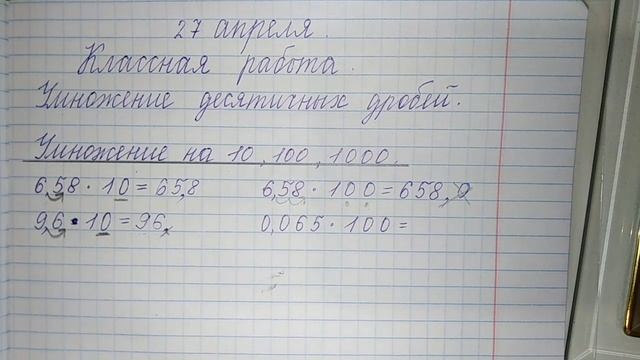 27 апреля.
Классная работа.
Умножение десятичных дробей.
Умножение на 10, 100, 1000.
6,58 · 10 = 65,8 6,58 · 100 = 658,0
9,6 · 10 = 96, 0,065 · 100 =